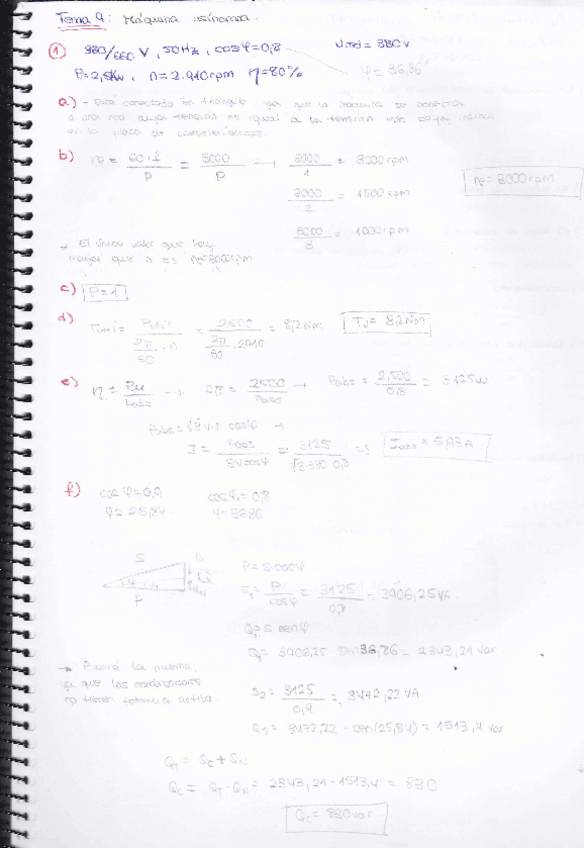 Tema 9: Máquina asíncrona.
① 380/660 V, 50Hz, cosφ=0,8 Vred = 380V
P=2,5kW, n=2.910rpm η=80% φ=36,86°
a) - Está conectada en triángulo ya que la máquina se conecta
a una red cuya tensión es igual a la tensión más baja
en la placa de características.
b) ns = 60·f / P = 3000 / P → 3000 / 1 = 3000rpm ns=3000rpm
3000 / 2 = 1500 rpm
3000 / 3 = 1000rpm
→ El único valor que hay
mayor que n es ns=3000rpm
c) P=1
d) = 2500 / (2π/60 · 2910) = 8,2Nm Tu = 8,2Nm
e) η = Pu / Pabs → 0,8 = 2500 / Pabs → Pabs = 2.500 / 0,8 = 3125W
Pabs = √3 V·I cosφ →
I = Pabs / √3Vcosφ = 3125 / √3·380·0,8 ⇒ Iabs = 5,93A
f) cosφ=0,9 cosφ=0,8
φ=25,84 φ=36,86
S
P
S1 = P / cosφ = 3125 / 0,8 = 3906,25VA
Q=S senφ
Q = 3906,25 sen36,86 = 2343,21 var
→ P será la misma,
ya que los condensadores
no tienen potencia activa.
S2 = 3125 / 0,9 = 3472,22VA
Q2 = 3472,22 · sen(25,84) = 1513,4 var
QT = QC + QN
QC = QT - QN = 2343,21 - 1513,4 = 830
QC = 830var.